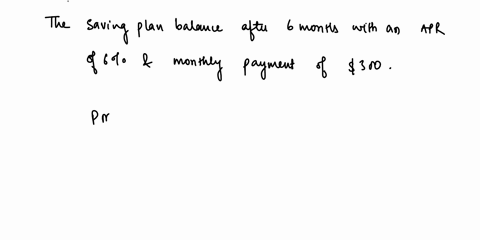 The saving plan balance after 6 months with an APR
of 6% & monthly payment of $300.
PM